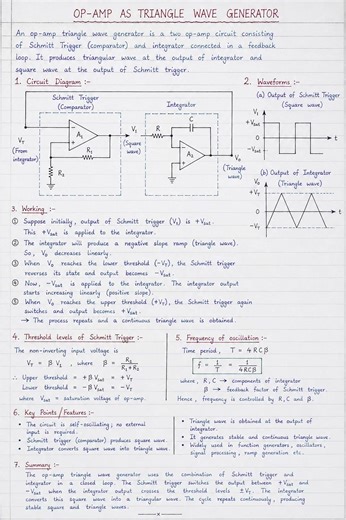 OP-AMP AS TRIANGLE WAVE GENERATOR
An op-amp triangle wave generator is a two op-amp circuit consisting
of Schmitt Trigger (comparator) and integrator connected in a feedback
loop. It produces triangular wave at the output of integrator and
square wave at the output of Schmitt trigger.
1. Circuit Diagram :-
Schmitt Trigger
(Comparator)
Integrator
V_T
(From
integrator)
A₁
R₁
R₂
V_S
(Square
wave)
R
C
A₂
V_o
(Triangle
wave)
2. Waveforms :-
(a) Output of Schmitt Trigger
(Square wave)
V_S
+V_sat
0
-V_sat
t
(b) Output of Integrator
(Triangle wave)
V_o
+V_T
0
-V_T
t
3. Working :-
① Suppose initially, output of Schmitt trigger (V_S) is +V_sat.
This +V_sat is applied to the integrator.
② The integrator will produce a negative slope ramp (triangle wave).
So, V_o decreases linearly.
③ When V_o reaches the lower threshold (-V_T), the Schmitt trigger
reverses its state and output becomes -V_sat.
④ Now, -V_sat is applied to the integrator. The integrator output
starts increasing linearly (positive slope).
⑤ When V_o reaches the upper threshold (+V_T), the Schmitt trigger again
switches and output becomes +V_sat.
→ The process repeats and a continuous triangle wave is obtained.
4. Threshold levels of Schmitt Trigger :-
The non-inverting input voltage is
V_T = β V_S , where β = R₂ / (R₁ + R₂)
∴ Upper threshold = +β V_sat = +V_T
Lower threshold = -β V_sat = -V_T
where V_sat = saturation voltage of op-amp.
5. Frequency of oscillation :-
Time period, T = 4 R C β
f = 1/T = 1/(4RCβ)
where, R, C → components of integrator
β → feedback factor of Schmitt trigger.
Hence, frequency is controlled by R, C and β.
6. Key Points / Features :-
• The circuit is self-oscillating; no external
input is required.
• Schmitt trigger (comparator) produces square wave.
• Integrator converts square wave into triangle wave.
• Triangle wave is obtained at the output of
integrator.
• It generates stable and continuous triangle wave.
• Widely used in function generators, oscillators,
signal processing, ramp generation etc.
7. Summary :-
The op-amp triangle wave generator uses the combination of Schmitt trigger and
integrator in a closed loop. The Schmitt trigger switches the output between +V_sat and
-V_sat when the integrator output crosses the threshold levels ±V_T. The integrator
converts this square wave into a triangular wave. The cycle repeats continuously, producing
stable square and triangle waves.